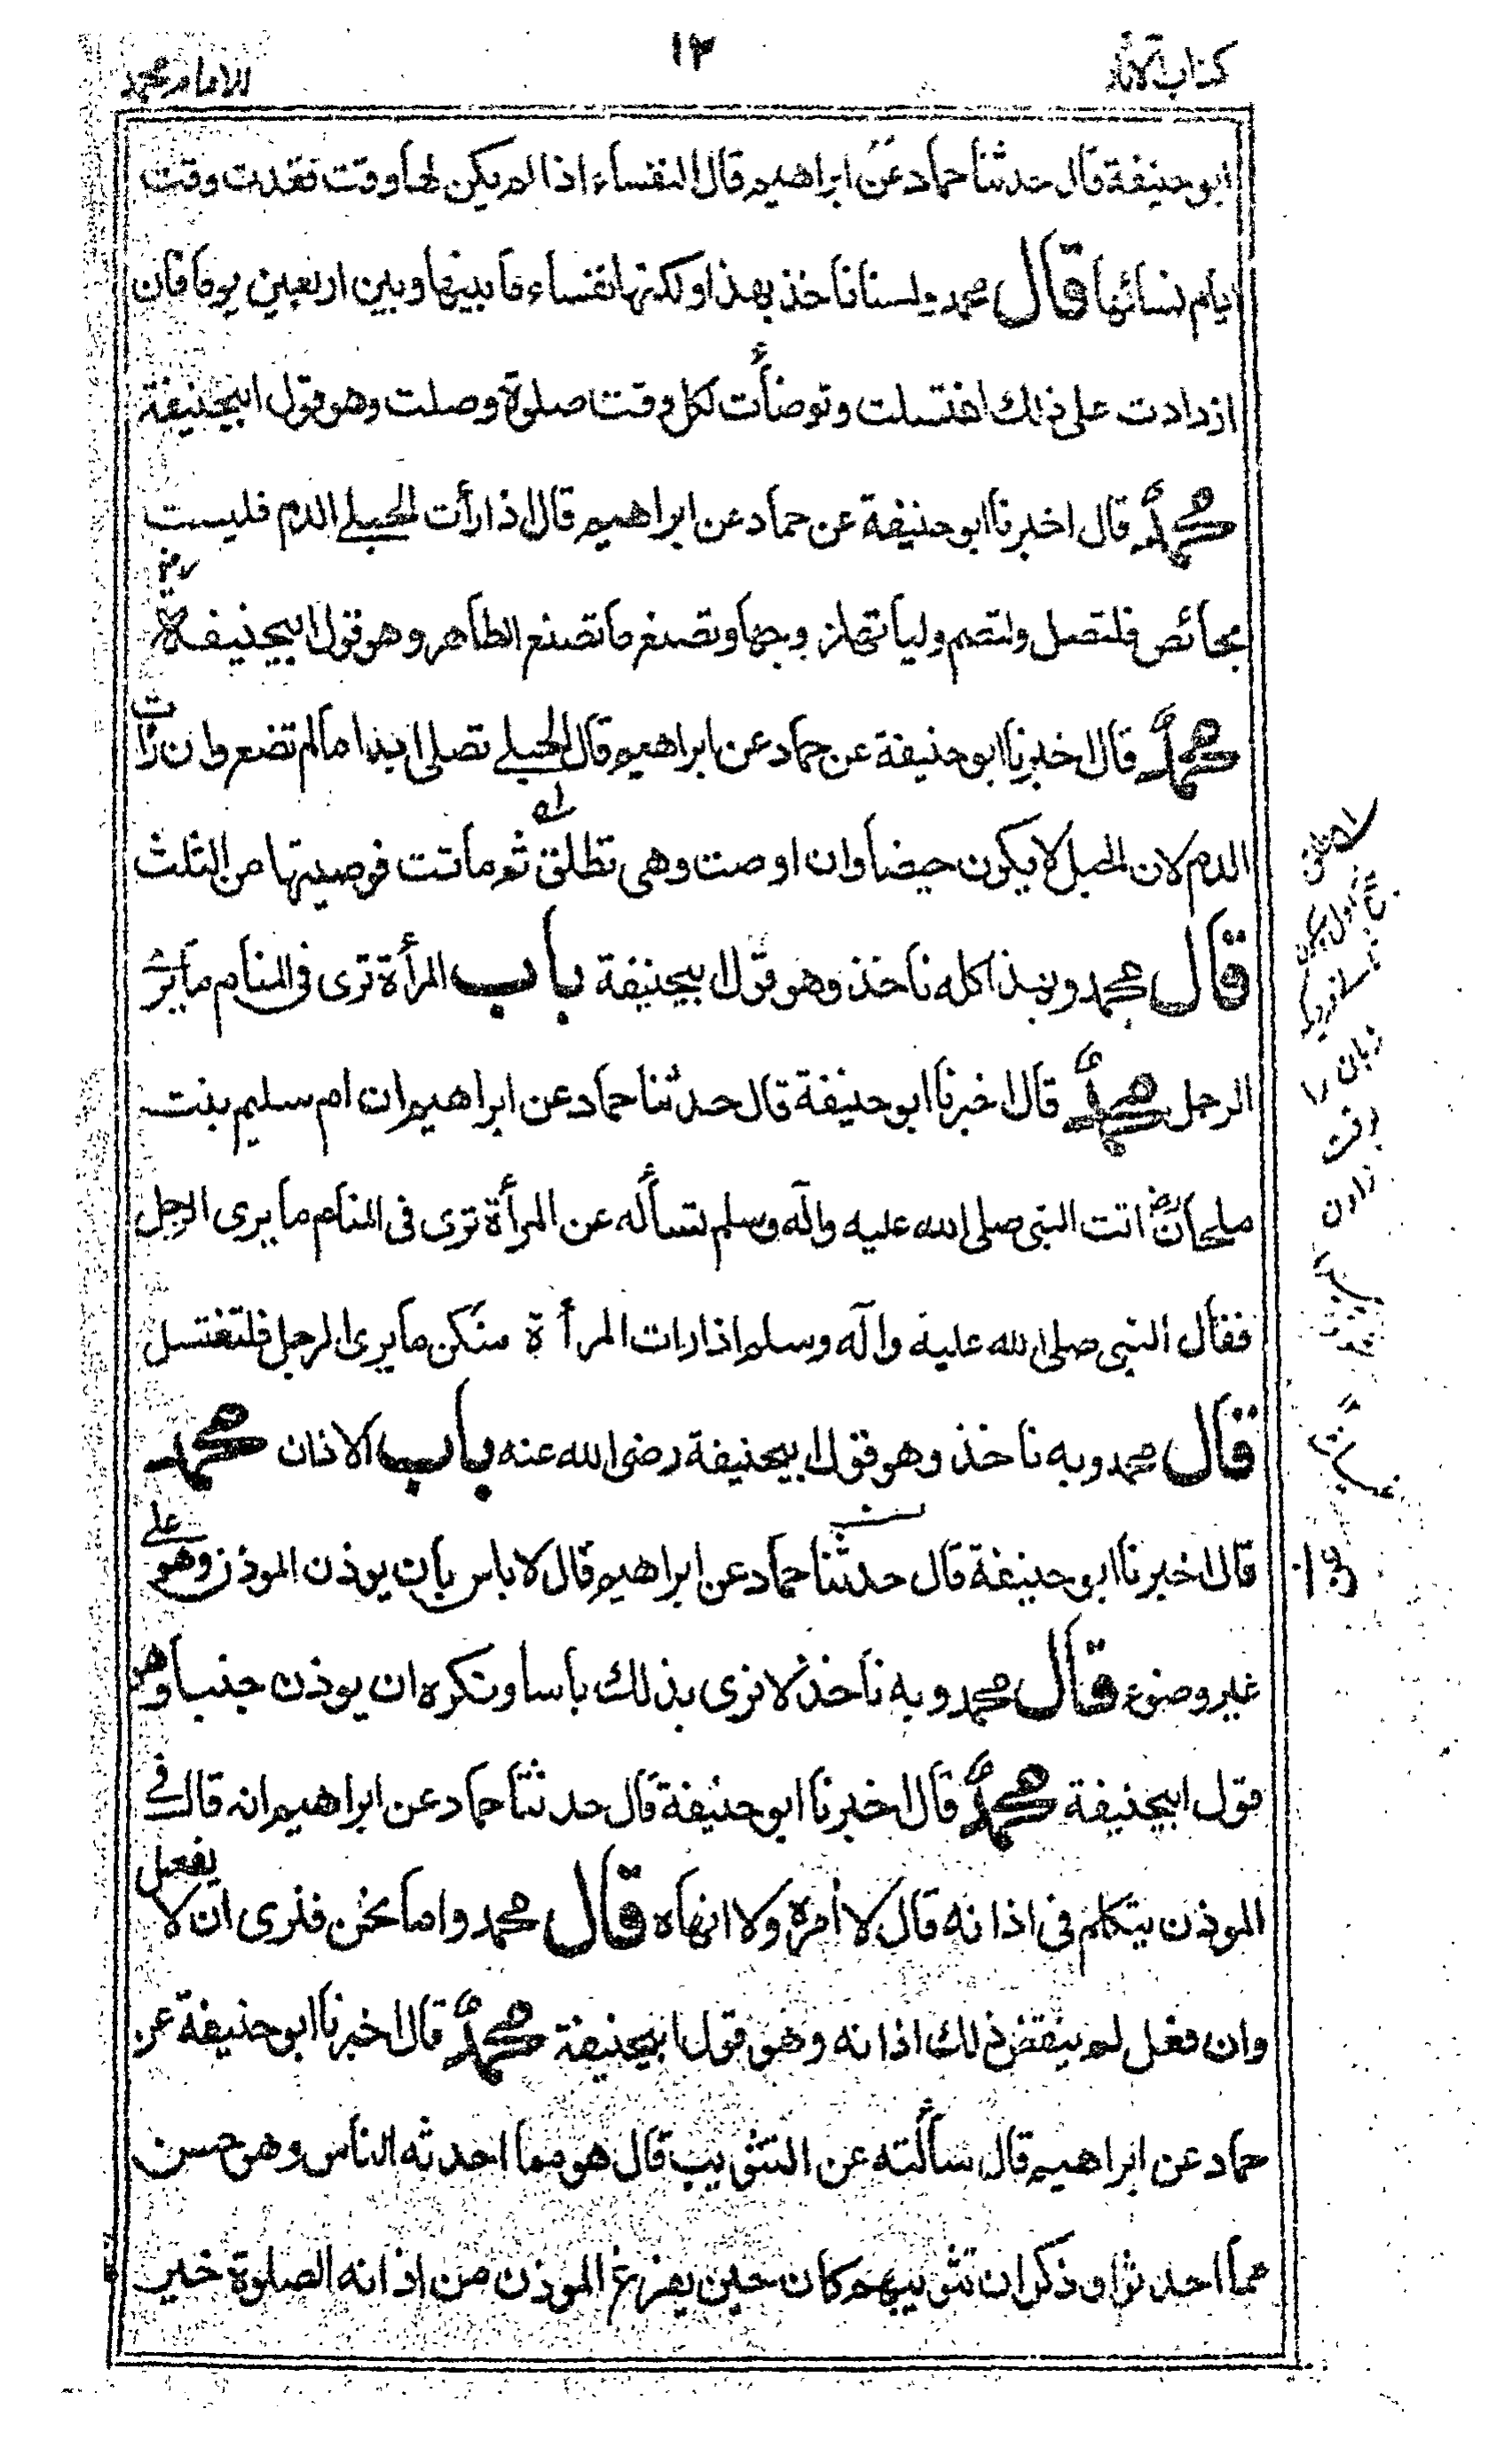 كتاب الآثار
١٣
للامام محمد
ابو حنيفة قال حدثنا حماد عن ابراهيم قال النفساء اذا لم يكن لها وقت فقدت وقت
ايام نسائها قال محمد ولسنا ناخذ بهذا ولكنها نفساء ما بينها وبين اربعين يوما فان
ازدادت على ذلك اغتسلت وتوضأت لكل وقت صلوة وصلت وهو قول ابيحنيفة
محمد قال اخبرنا ابو حنيفة عن حماد عن ابراهيم قال اذا رأت الحبلے الدم فليست
بحائض فلتصل ولتصم ولياتها زوجها وتصنع ما تصنع الطاهر وهو قول ابيحنيفة رض
محمد قال اخبرنا ابو حنيفة عن حماد عن ابراهيم قال الحبلے تصلى ابدا مالم تضع وان رأت
الدم لان الحبل لا يكون حيضا وان اوصت وهى تطلق ثم ماتت فوصيتها من الثلث
قال محمد وبهذا كله ناخذ وهو قول ابيحنيفة باب المرأة ترى فى المنام ما يرى
الرجل محمد قال اخبرنا ابو حنيفة قال حدثنا حماد عن ابراهيم ان ام سليم بنت
ملحان رض اتت النبى صلى الله عليه وآله وسلم تسأله عن المرأة ترى فى المنام ما يرى الرجل
فقال النبى صلى الله عليه وآله وسلم اذا رات المرأة منكن ما يرى الرجل فلتغتسل
قال محمد وبه ناخذ وهو قول ابيحنيفة رضى الله عنه باب الاذان محمد
قال اخبرنا ابو حنيفة قال حدثنا حماد عن ابراهيم قال لا باس بان يوذن الموذن وهو على
غير وضوء قال محمد وبه ناخذ لا نرى بذلك بأسا ونكره ان يوذن جنبا وهو
قول ابيحنيفة محمد قال اخبرنا ابو حنيفة قال حدثنا حماد عن ابراهيم انه قال فے
الموذن يتكلم فى اذانه قال لا آمره ولا انهاه قال محمد واما نحن فنرى ان لا يفعل
وان فعل لم ينقض ذلك اذانه وهو قول ابيحنيفة محمد قال اخبرنا ابو حنيفة عن
حماد عن ابراهيم قال سألته عن التثويب قال هو مما احدثه الناس وهو حسن
مما احدثوا وذكر ان تثويبهم كان حين يفرغ الموذن من اذانه الصلوة خير